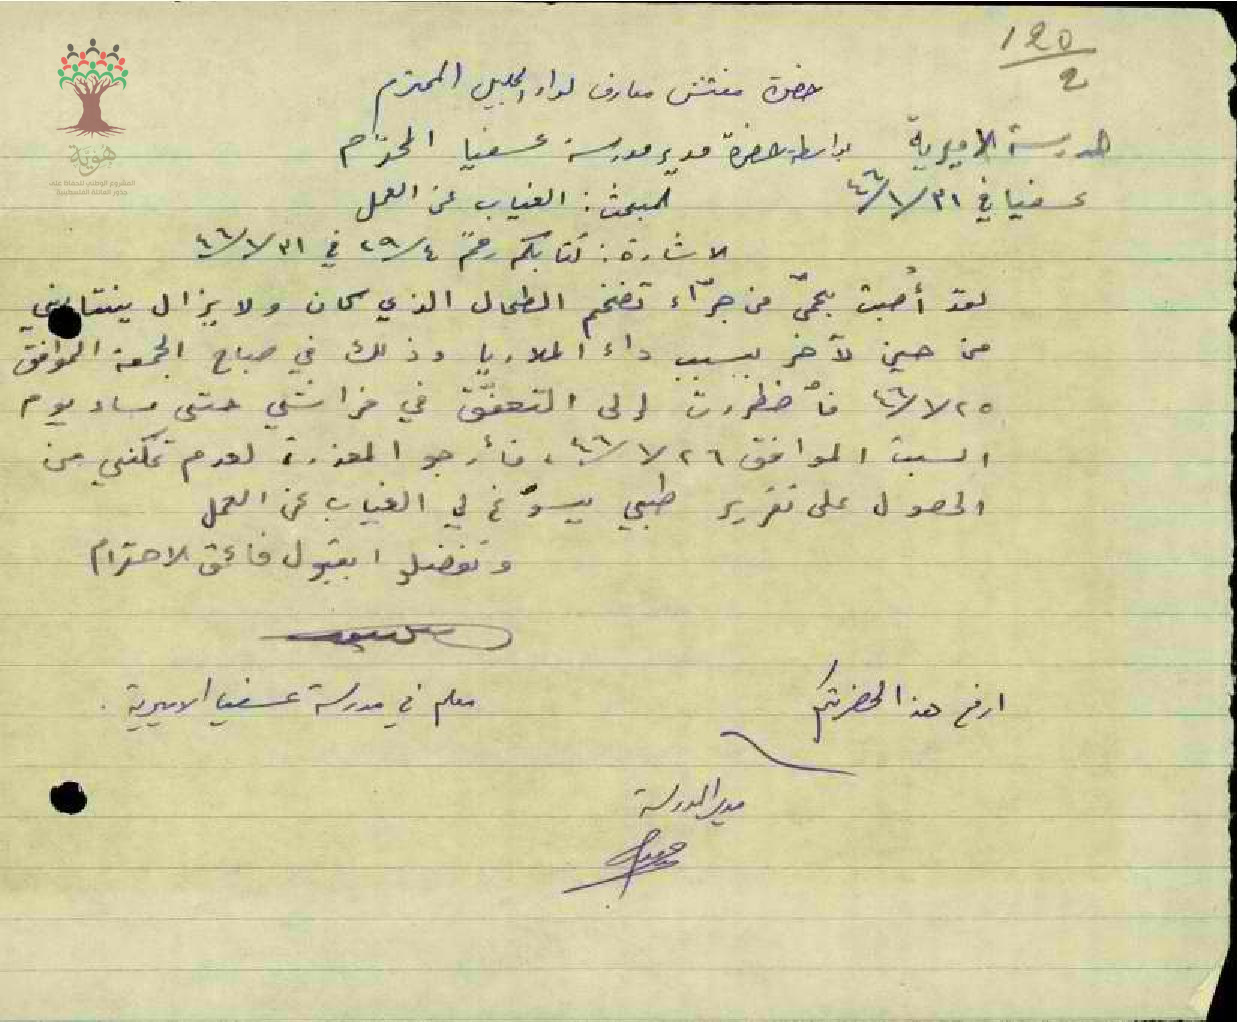 ١٢٥
٢
حضرة مفتش معارف لواء الجليل المحترم
المدرسة الاميرية
بواسطة حضرة مدير مدرسة عسفيا المحترم
عسفيا في ٣١/١/٤٦
المبحث: الغياب عن العمل
الاشارة: كتابكم رقم ٢٩/٤ في ٣١/١/٤٦
لقد أُصبت بحمّى من جرّاء تضخم الطحال الذي كان ولا يزال ينتابني
من حين لآخر بسبب داء الملاريا وذلك في صباح الجمعة الموافق
٢٥/١/٤٦ فأضطررت إلى في فراشي حتى مساء يوم
السبت الموافق ٢٦/١/٤٦، فأرجو المعذرة لعدم تمكني من
الحصول على تقرير طبي يسوّغ لي الغياب عن العمل
وتفضلوا بقبول فائق الاحترام
معلم في مدرسة عسفيا الاميرية.
ارفع هذا لحضرتكم
مدير المدرسة
هوية
المشروع الوطني للحفاظ على
جذور العائلة الفلسطينية